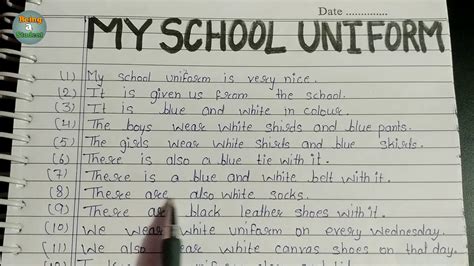 Being a Student
Date ..............
MY SCHOOL UNIFORM
(1) My school uniform is very nice.
(2) It is given us from the school.
(3) It is blue and white in colour.
(4) The boys wear white shirts and blue pants.
(5) The girls wear white shirts and blue skirts.
(6) There is also a blue tie with it.
(7) There is a blue and white belt with it.
(8) There are also white socks.
(9) There are black leather shoes with it.
(10) We wear white uniform on every Wednesday.
(11) We also wear white canvas shoes on that day.